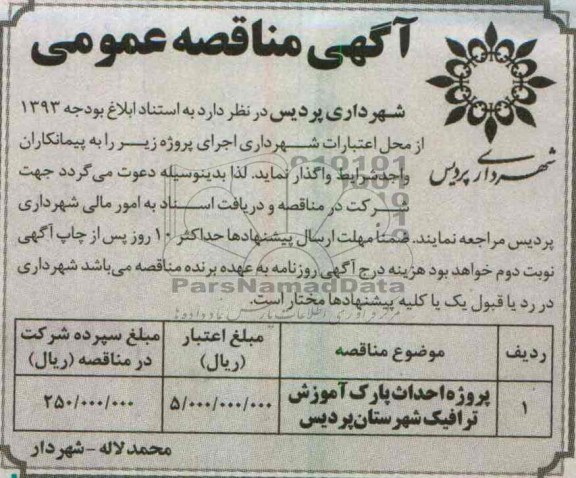 آگهی مناقصه عمومی
شهرداری پردیس
شهرداری پردیس در نظر دارد به استناد ابلاغ بودجه ۱۳۹۳
از محل اعتبارات شهرداری اجرای پروژه زیر را به پیمانکاران
واجد شرایط واگذار نماید. لذا بدینوسیله دعوت می گردد جهت
شرکت در مناقصه و دریافت اسناد به امور مالی شهرداری
پردیس مراجعه نمایند. ضمناً مهلت ارسال پیشنهادها حداکثر ۱۰ روز پس از چاپ آگهی
نوبت دوم خواهد بود هزینه درج آگهی روزنامه به عهده برنده مناقصه می باشد شهرداری
در رد یا قبول یک یا کلیه پیشنهادها مختار است.
ParsNamadData
ردیف موضوع مناقصه مبلغ اعتبار (ریال) مبلغ سپرده شرکت در مناقصه (ریال)
۱ پروژه احداث پارک آموزش ترافیک شهرستان پردیس ۵/۰۰۰/۰۰۰/۰۰۰ ۲۵۰/۰۰۰/۰۰۰
محمد لاله - شهردار